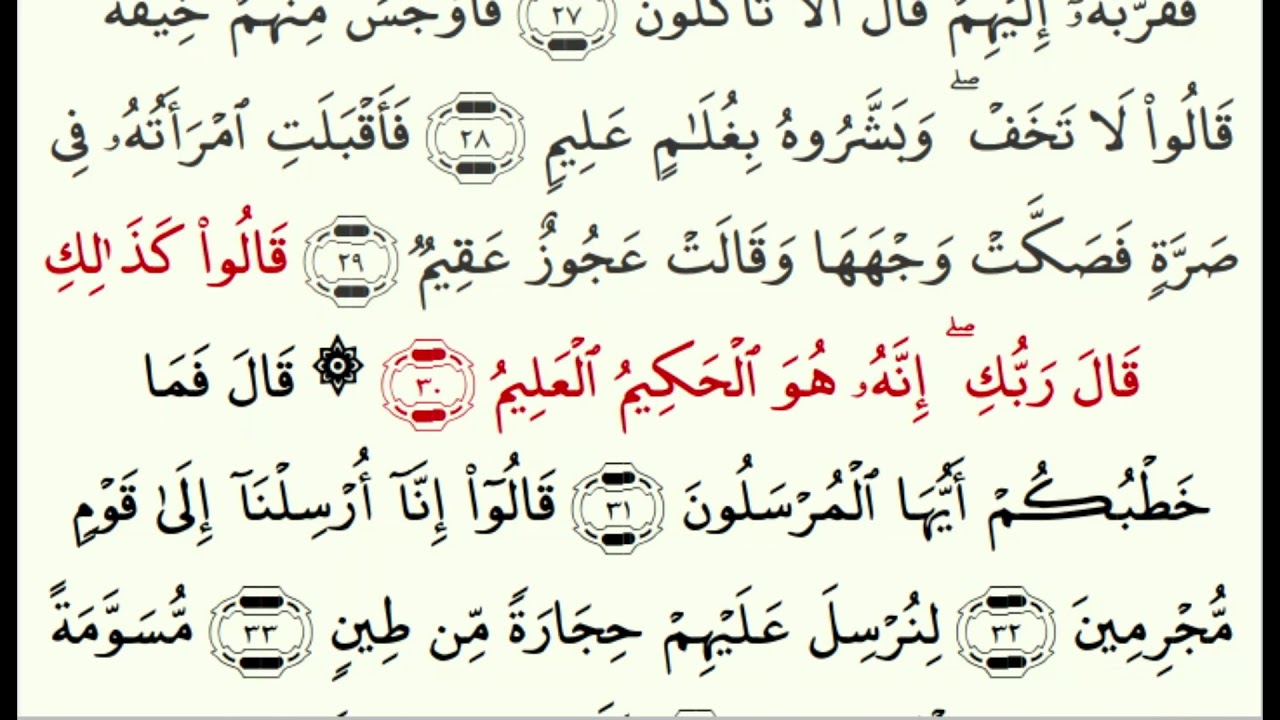 فَقَرَّبَهُۥٓ إِلَيْهِمْ قَالَ أَلَا تَأْكُلُونَ ٢٧ فَأَوْجَسَ مِنْهُمْ خِيفَةًۖ
قَالُوا۟ لَا تَخَفْۖ وَبَشَّرُوهُ بِغُلَـٰمٍ عَلِيمٍ ٢٨ فَأَقْبَلَتِ ٱمْرَأَتُهُۥ فِى
صَرَّةٍ فَصَكَّتْ وَجْهَهَا وَقَالَتْ عَجُوزٌ عَقِيمٌ ٢٩ قَالُوا۟ كَذَٰلِكِ
قَالَ رَبُّكِۖ إِنَّهُۥ هُوَ ٱلْحَكِيمُ ٱلْعَلِيمُ ٣٠ ۞ قَالَ فَمَا
خَطْبُكُمْ أَيُّهَا ٱلْمُرْسَلُونَ ٣١ قَالُوٓا۟ إِنَّآ أُرْسِلْنَآ إِلَىٰ قَوْمٍ
مُّجْرِمِينَ ٣٢ لِنُرْسِلَ عَلَيْهِمْ حِجَارَةً مِّن طِينٍ ٣٣ مُّسَوَّمَةً